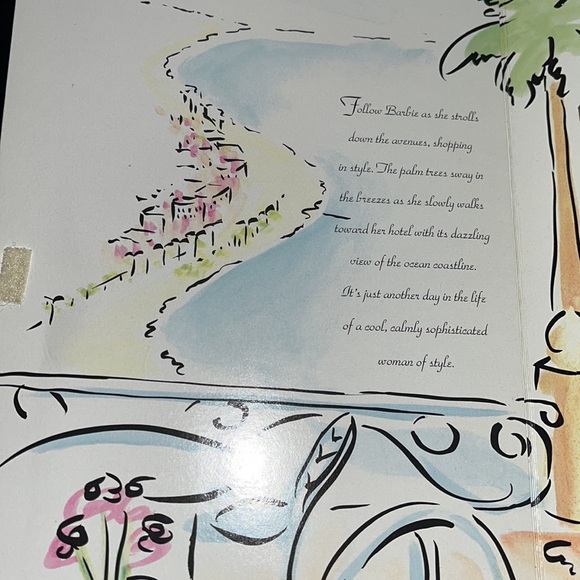 Follow Barbie as she strolls
down the avenues, shopping
in style. The palm trees sway in
the breezes as she slowly walks
toward her hotel with its dazzling
view of the ocean coastline.
It's just another day in the life
of a cool, calmly sophisticated
woman of style.